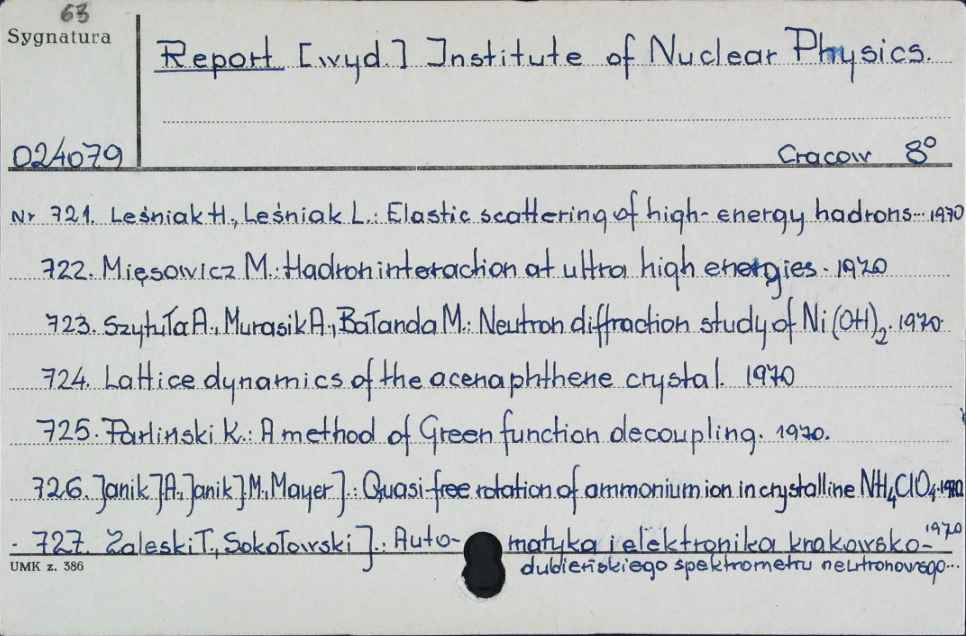 63
Sygnatura
Report [wyd.] Institute of Nuclear Physics.
024079
Cracow 8°
Nr 721. Leśniak H., Leśniak L.: Elastic scattering of high-energy hadrons... 1970
722. Mięsowicz M.: Hadron interaction at ultra high energies. 1970
723. Szytuła A., Murasik A., Bałanda M.: Neutron diffraction study of Ni(OH)₂. 1970
724. Lattice dynamics of the acenaphthene crystal. 1970
725. Parliński K.: A method of Green function decoupling. 1970.
726. Janik J.A., Janik J.M., Mayer J.: Quasi-free rotation of ammonium ion in crystalline NH₄ClO₄. 1970
727. Zaleski T., Sokołowski J.: Automatyka i elektronika krakowsko- 1970
UMK z. 386
dubieńskiego spektrometru neutronowego...